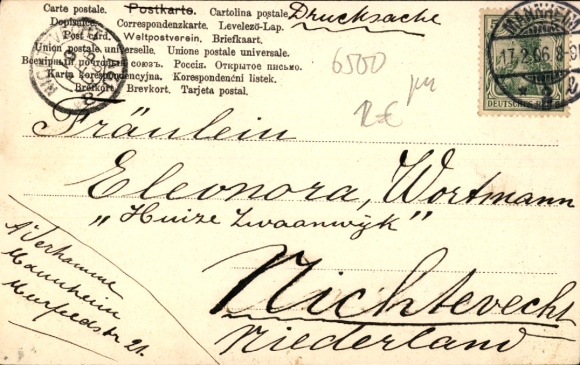 Carte postale. Postkarte. Cartolina postale.
Dopisnice. Correspondenzkarte. Levelező-Lap.
Post card. Weltpostverein. Briefkaart.
Union postale universelle. Unione postale universale.
Всемірный почтовый союзъ. Россія. Открытое письмо.
Karta korespondencyjna. Korespondenční lístek.
Brefkort. Brevkort. Tarjeta postal.
Drucksache
MANNHEIM
17.2.06
DEUTSCHES REICH
6500
2€
Fräulein
Eleonora Wortmann
„Huize Zwaanwijk"
Nichtevecht
Niederland
A Verhamme
Mannheim
Meerfeldstr 21.